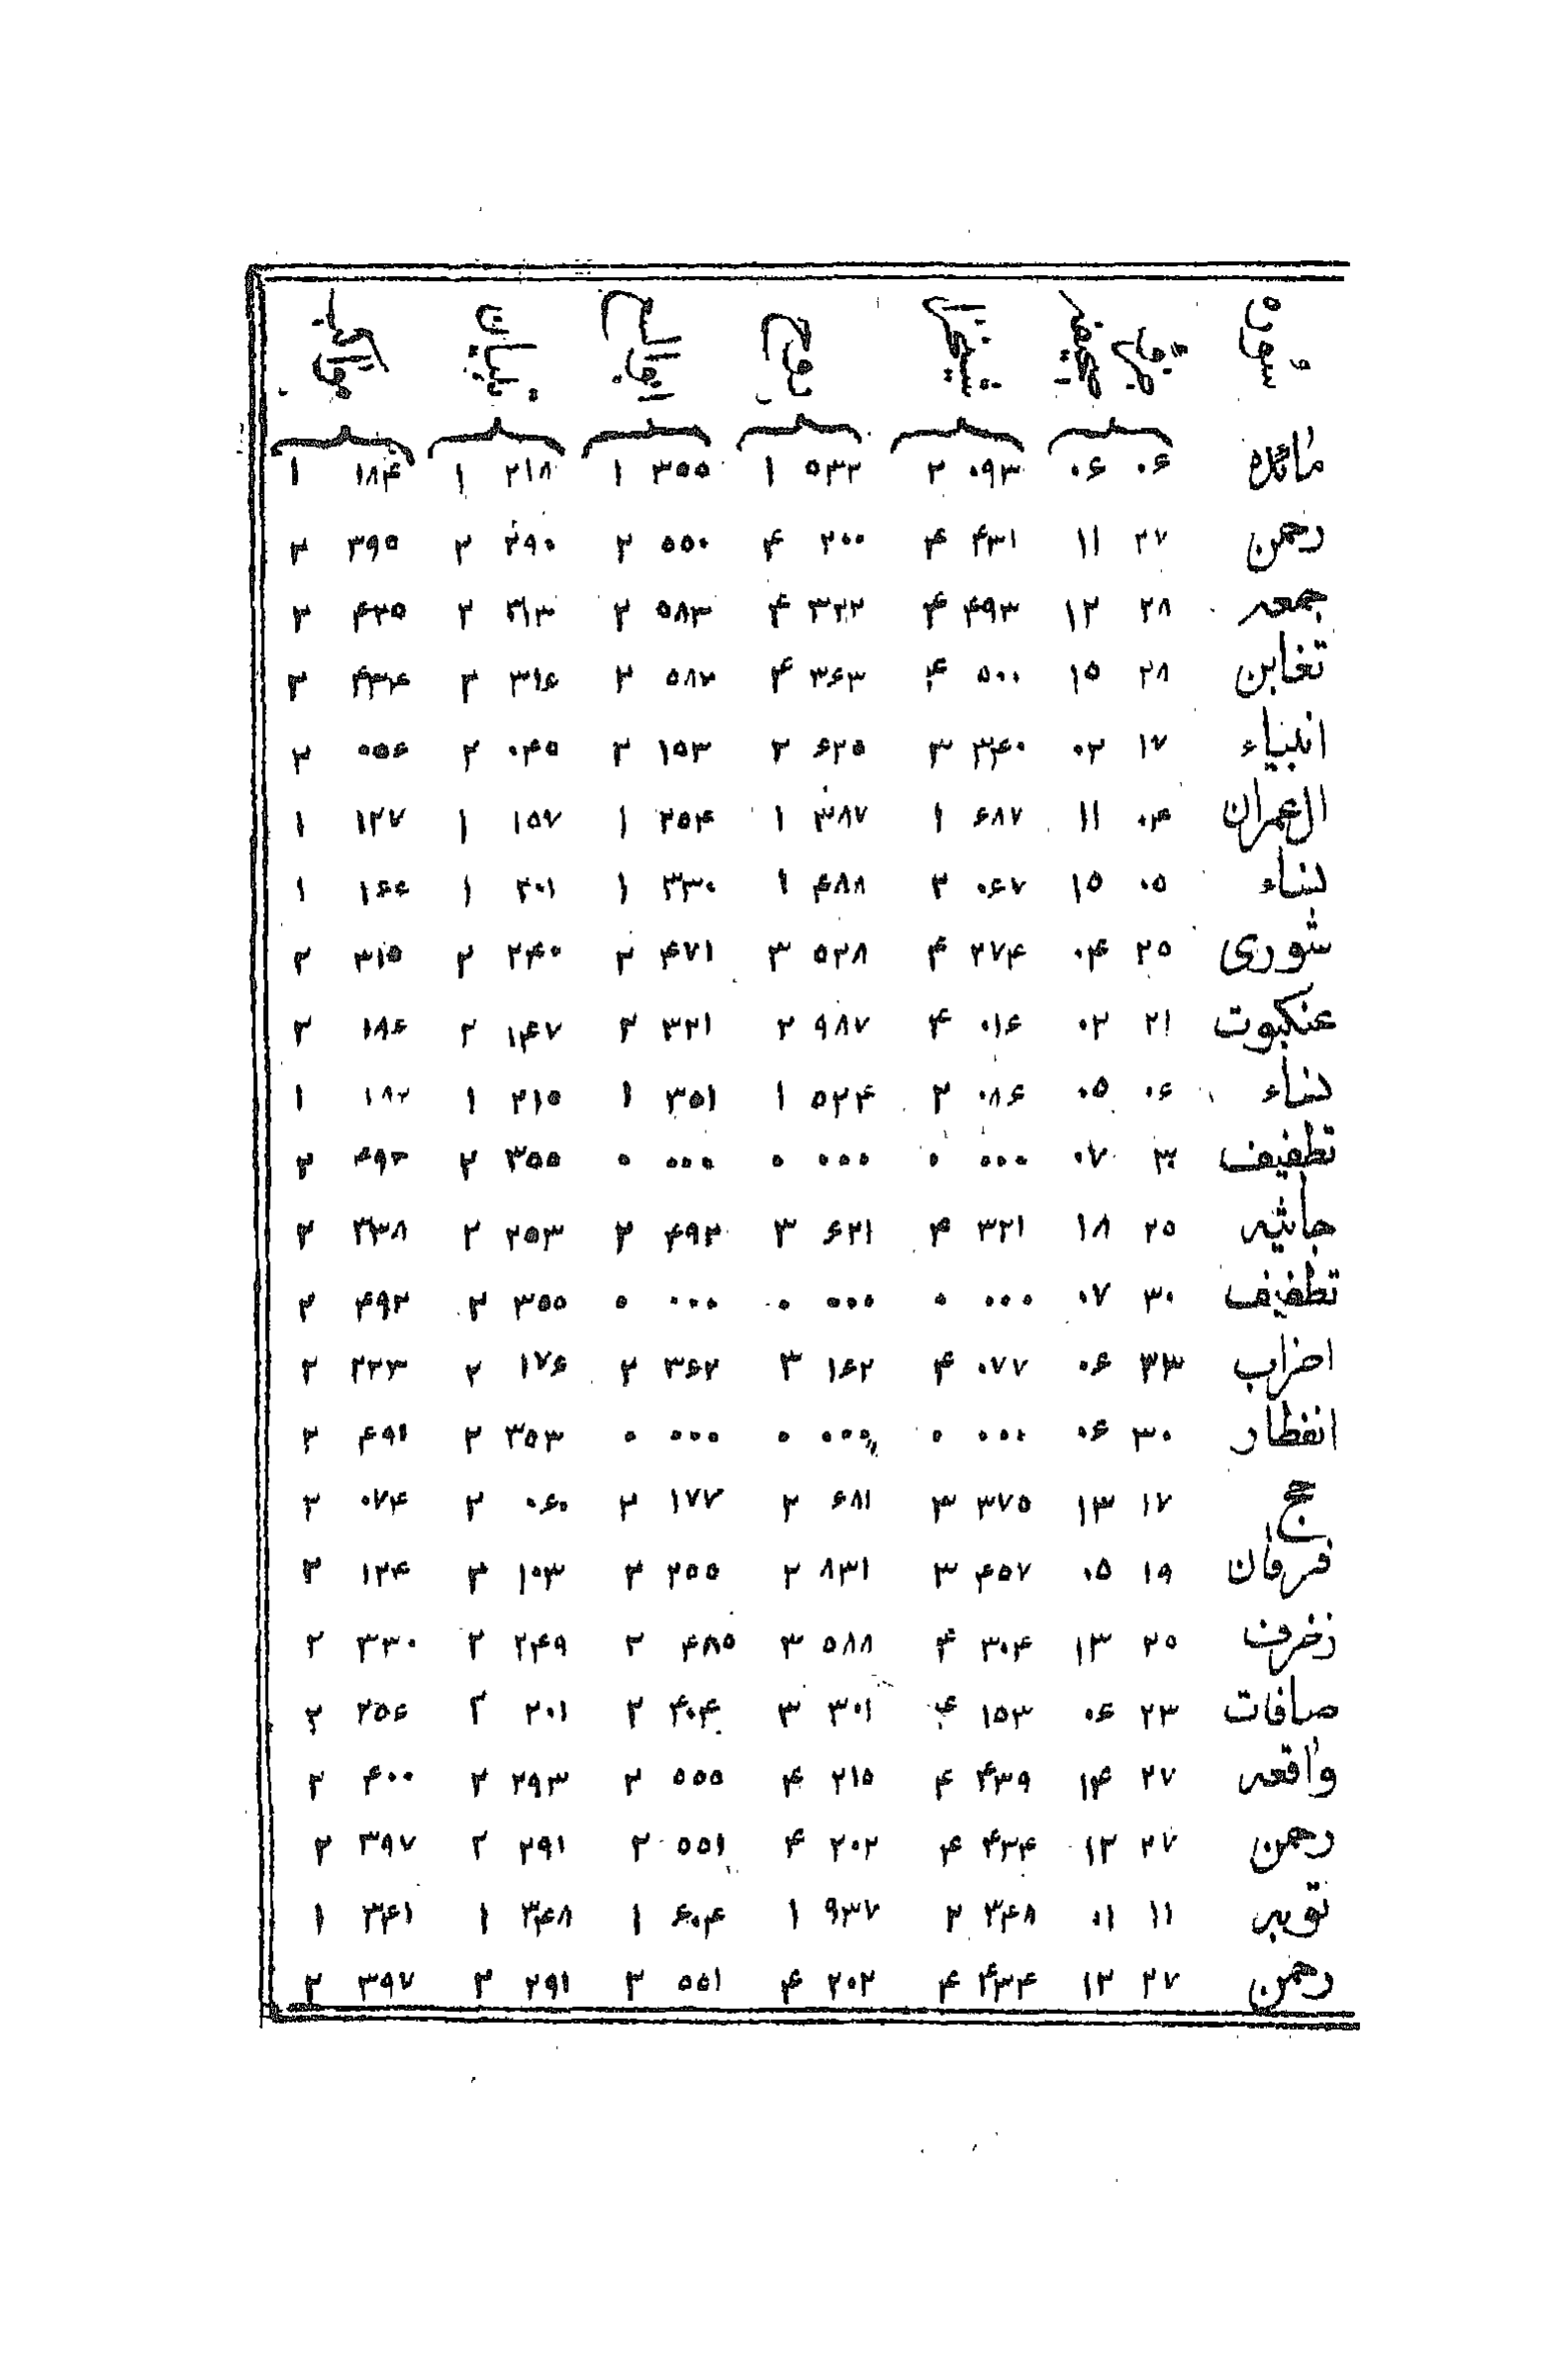 مائده ۰۶ ۰۶ ۰۹۳ ۲ ۵۳۲ ۱ ۳۵۵ ۱ ۲۱۸ ۱ ۱۸۴ ۱
رحمن ۲۷ ۱۱ ۴۳۱ ۴ ۲۰۰ ۴ ۵۵۰ ۲ ۲۹۰ ۲ ۳۹۵ ۲
جمعه ۲۸ ۱۲ ۴۹۳ ۴ ۳۲۲ ۴ ۵۸۳ ۲ ۳۱۳ ۲ ۴۳۵ ۲
تغابن ۲۸ ۱۵ ۵۰۰ ۴ ۳۶۳ ۴ ۵۸۷ ۲ ۳۱۶ ۲ ۴۳۴ ۲
انبیاء ۱۷ ۰۲ ۳۴۰ ۳ ۶۲۵ ۲ ۱۵۳ ۲ ۰۴۵ ۲ ۰۵۶ ۲
ال‌عمران ۰۴ ۱۱ ۶۸۷ ۱ ۳۸۷ ۱ ۲۵۴ ۱ ۱۵۷ ۱ ۱۲۷ ۱
نساء ۰۵ ۱۵ ۰۶۷ ۲ ۴۸۸ ۱ ۳۳۰ ۱ ۲۰۱ ۱ ۱۶۶ ۱
شوری ۲۵ ۰۴ ۲۷۴ ۴ ۵۲۸ ۳ ۴۷۱ ۲ ۲۴۰ ۲ ۳۱۵ ۲
عنکبوت ۲۱ ۰۲ ۰۱۶ ۴ ۹۸۷ ۲ ۳۲۱ ۲ ۱۴۷ ۲ ۱۸۶ ۲
نساء ۰۶ ۰۵ ۰۸۶ ۲ ۵۲۴ ۱ ۳۵۱ ۱ ۲۱۵ ۱ ۱۸۲ ۱
تطفیف ۳۰ ۰۷ ۰۰۰ ۰ ۰۰۰ ۰ ۰۰۰ ۰ ۳۵۵ ۲ ۴۹۲ ۲
جاثیه ۲۵ ۱۸ ۳۲۱ ۴ ۶۲۱ ۳ ۴۹۲ ۲ ۲۵۳ ۲ ۳۳۸ ۲
تطفیف ۳۰ ۰۷ ۰۰۰ ۰ ۰۰۰ ۰ ۰۰۰ ۰ ۳۵۵ ۲ ۴۹۲ ۲
احزاب ۳۳ ۰۶ ۰۷۷ ۴ ۱۶۲ ۳ ۳۶۲ ۲ ۱۷۶ ۲ ۲۲۳ ۲
انفطار ۳۰ ۰۶ ۰۰۰ ۰ ۰۰۰ ۰ ۰۰۰ ۰ ۳۵۳ ۲ ۴۹۱ ۲
حج ۱۷ ۱۳ ۳۷۵ ۳ ۶۸۱ ۲ ۱۷۷ ۲ ۰۶۰ ۲ ۰۷۴ ۲
فرقان ۱۹ ۰۵ ۴۵۷ ۳ ۸۳۱ ۲ ۲۵۵ ۲ ۱۰۳ ۲ ۱۲۴ ۲
زخرف ۲۵ ۱۳ ۳۰۴ ۴ ۵۸۸ ۳ ۴۸۵ ۲ ۲۴۹ ۲ ۳۳۰ ۲
صافات ۲۳ ۰۶ ۱۵۳ ۴ ۳۰۱ ۳ ۴۰۴ ۲ ۲۰۱ ۲ ۲۵۶ ۲
واقعه ۲۷ ۱۴ ۴۳۹ ۴ ۲۱۵ ۴ ۵۵۵ ۲ ۲۹۳ ۲ ۴۰۰ ۲
رحمن ۲۷ ۱۲ ۴۳۴ ۴ ۲۰۲ ۴ ۵۵۱ ۲ ۲۹۱ ۲ ۳۹۷ ۲
توبه ۱۱ ۰۱ ۳۴۸ ۲ ۹۳۷ ۱ ۶۰۴ ۱ ۳۴۸ ۱ ۳۴۱ ۱
رحمن ۲۷ ۱۲ ۴۳۴ ۴ ۲۰۲ ۴ ۵۵۱ ۲ ۲۹۱ ۲ ۳۹۷ ۲